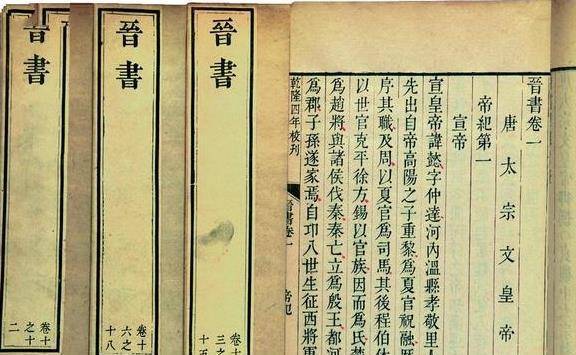 晉書卷一
唐太宗文皇帝
帝紀第一
宣帝
宣皇帝諱懿字仲達河內溫縣孝敬里
先出自帝高陽之子重黎爲夏官祝融
序其職及周以夏官爲司馬其後程伯休
以世官克平徐方錫以官族因而爲氏楚
爲趙將與諸侯伐秦秦亡立爲殷王都河
爲郡子孫遂家焉自卬八世生征西將軍
乾隆四年校刊
晉書卷一
帝紀
晉書
卷十
三之
十五
晉書
卷十
六之
十八
晉書
卷十
之十
二